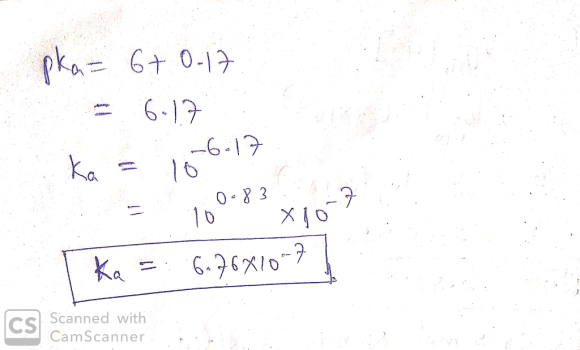 pka = 6 + 0.17
= 6.17
ka = 10^-6.17
= 10^0.83 × 10^-7
ka = 6.76 × 10^-7
CS Scanned with
CamScanner